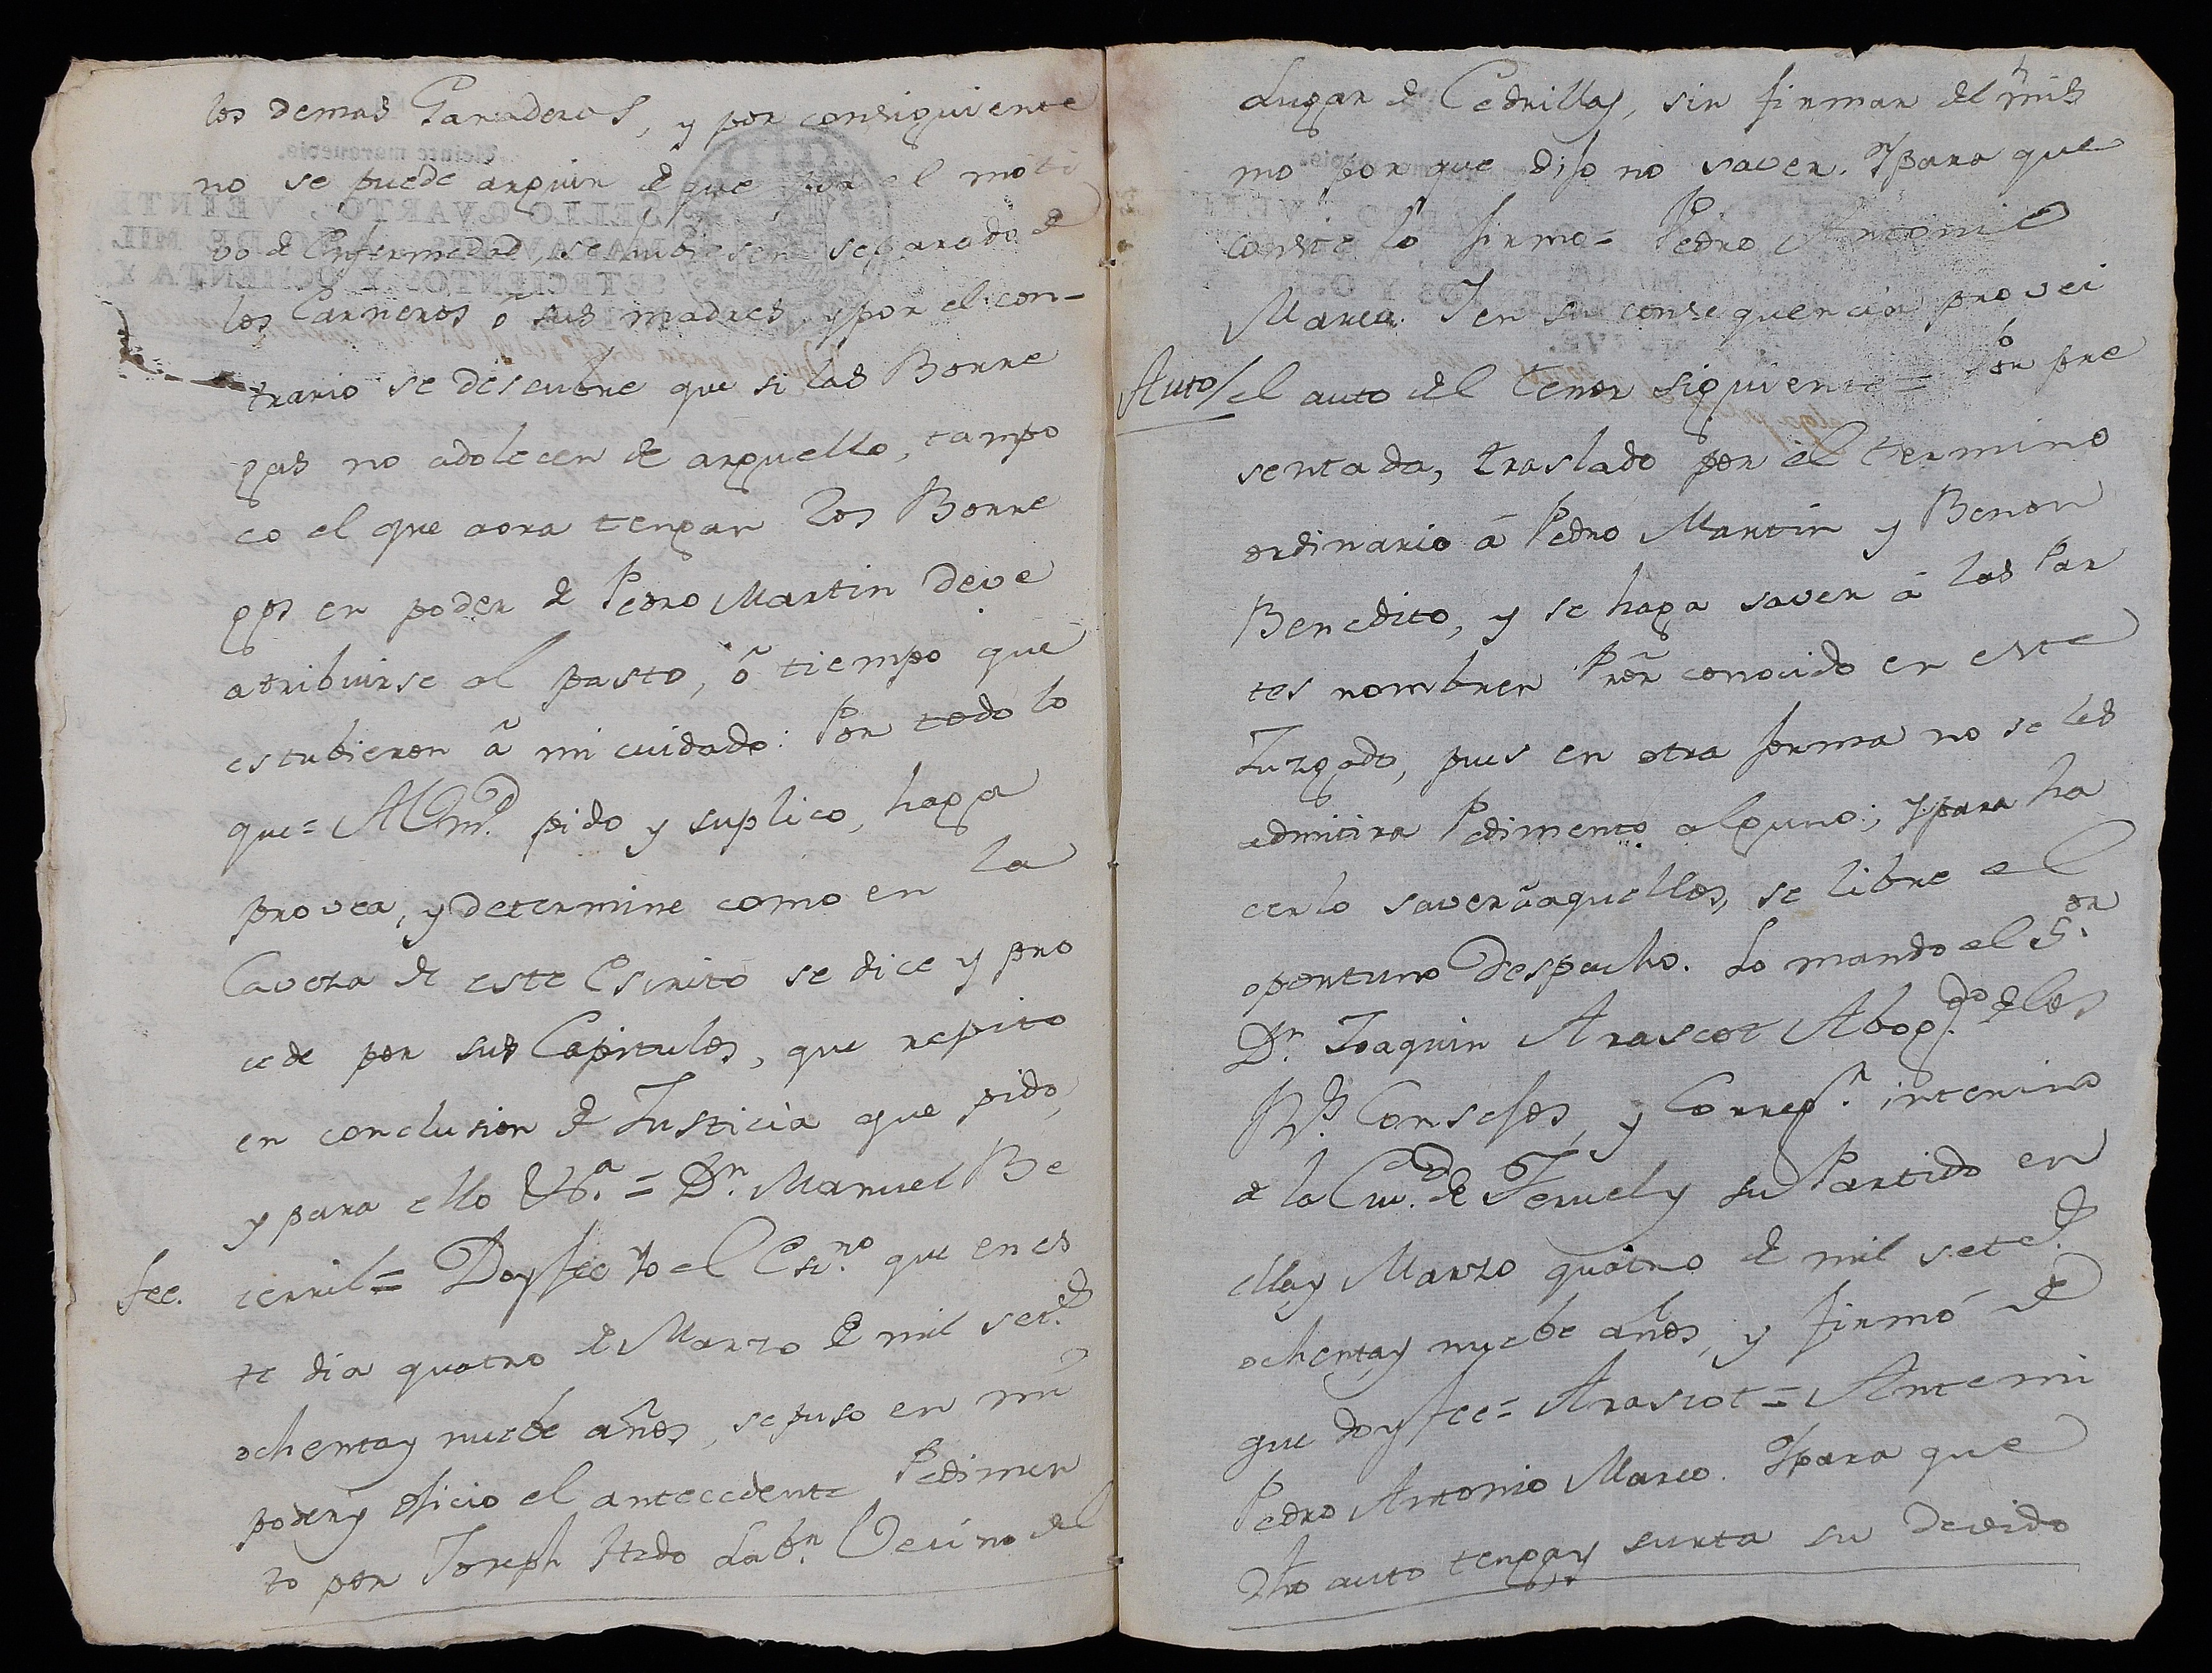 los demas Ganaderos, y por consiguiente
no se puede arguir de que por el moti
vo de Enfermedad, se hubiesen separado de
los Carneros ô sus madres, y por el con-
trario se descubre que si las Borre
gas no adolecen de arguello, tampo
co el que aora tengan los Borre
gos en poder de Pedro Martin deve
atribuirse al pasto, ô tiempo que
estubieron â mi cuidado: Por todo lo
que= A Vmd. pido y suplico, haga
provea, y determine como en la
Caveza de este Escrito se dice y pro
cede por sus Capitulos, que repito
en conclusion de Justicia que pido,
y para ello &a.= Dn. Manuel Be
fee. cerril= Doy fee Yo el Esno. que en es
te dia quatro de Marzo de mil setes.
ochenta y nuebe años, se puso en mi
poder y oficio el antecedente Pedimen
to por Joseph Labn. Vecino del
Lugar de Cedrillas, sin firmar del mis
mo por que dijo no saver. Y para que
conste lo firmo= Pedro Antonio
Marco. Y en su consequencia provei
Auto/ el auto del tenor siguiente= Por pre
sentada, traslado por el termino
ordinario â Pedro Martin y
Benedito, y se haga saver â las Par
tes nombren Pror. conocido en este
Juzgado, pues en otra forma no se les
admitira Pedimento alguno; y para ha
cerlo saver â aquellos, se libre el
oportuno Despacho. Lo mando el Sor.
Dn. Joaquin Arascot Abogdo. de los
Rs. Consejos, y Corregr. interino
de la Ciud. de Teruel y su Partido en
ella y Marzo quatro de mil setes.
ochenta y nuebe años, y firmó de
que doy fee= Arascot= Ante mi
Pedro Antonio Marco. Y para que
dho auto tenga y surta su devido